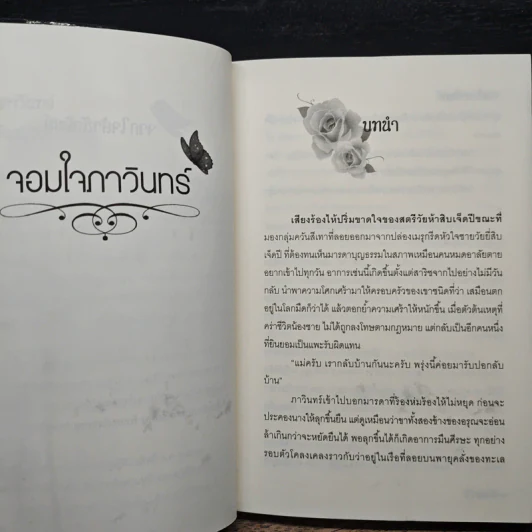 จอมใจภาวินทร์
บทนำ
เสียงร้องไห้ปริ่มขาดใจของสตรีวัยห้าสิบเจ็ดปีขณะที่
มองกลุ่มควันสีเทาที่ลอยออกมาจากปล่องเมรุกรีดหัวใจชายวัยยี่สิบ
เจ็ดปี ที่ต้องทนเห็นมารดาบุญธรรมในสภาพเหมือนคนหมดอาลัยตาย
อยากเข้าไปทุกวัน อาการเช่นนี้เกิดขึ้นตั้งแต่สาริชจากไปอย่างไม่มีวัน
กลับ นำพาความโศกเศร้ามาให้ครอบครัวของเขาชนิดที่ว่า เสมือนตก
อยู่ในโลกมืดก็ว่าได้ แล้วตอกย้ำความเศร้าให้หนักขึ้น เมื่อตัวต้นเหตุที่
คร่าชีวิตน้องชาย ไม่ได้ถูกลงโทษตามกฎหมาย แต่กลับเป็นอีกคนหนึ่ง
ที่ยินยอมเป็นแพะรับผิดแทน
"แม่ครับ เรากลับบ้านกันนะครับ พรุ่งนี้ค่อยมารับปอกลับ
บ้าน"
ภาวินทร์เข้าไปบอกมารดาที่ร้องห่มร้องไห้ไม่หยุด ก่อนจะ
ประคองนางให้ลุกขึ้นยืน แต่ดูเหมือนว่าขาทั้งสองข้างของอรุณจะอ่อน
ล้าเกินกว่าจะหยัดยืนได้ พอลุกขึ้นได้ก็เกิดอาการมึนศีรษะ ทุกอย่าง
รอบตัวโคลงเคลงราวกับว่าอยู่ในเรือที่ลอยบนพายุคลั่งของทะเล